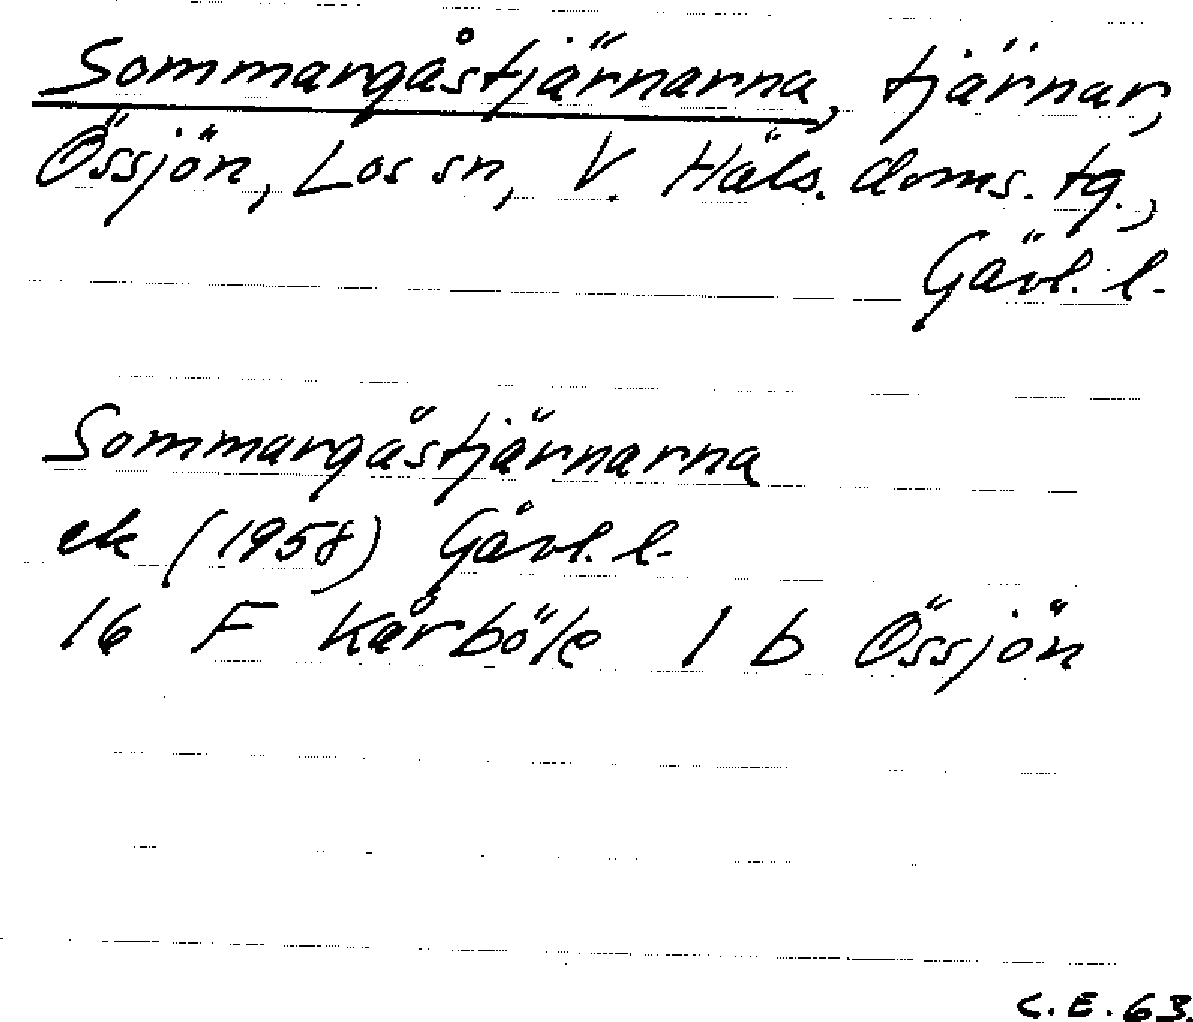 Sommargåstjärnarna, tjärnar,
Össjön, Los sn, V. Häls. doms. tg.,
Gävl. l.
Sommargästjärnarna
ek (1958) Gävl. l.
16 F Kårböle 1 b Össjön
C.E. 63.